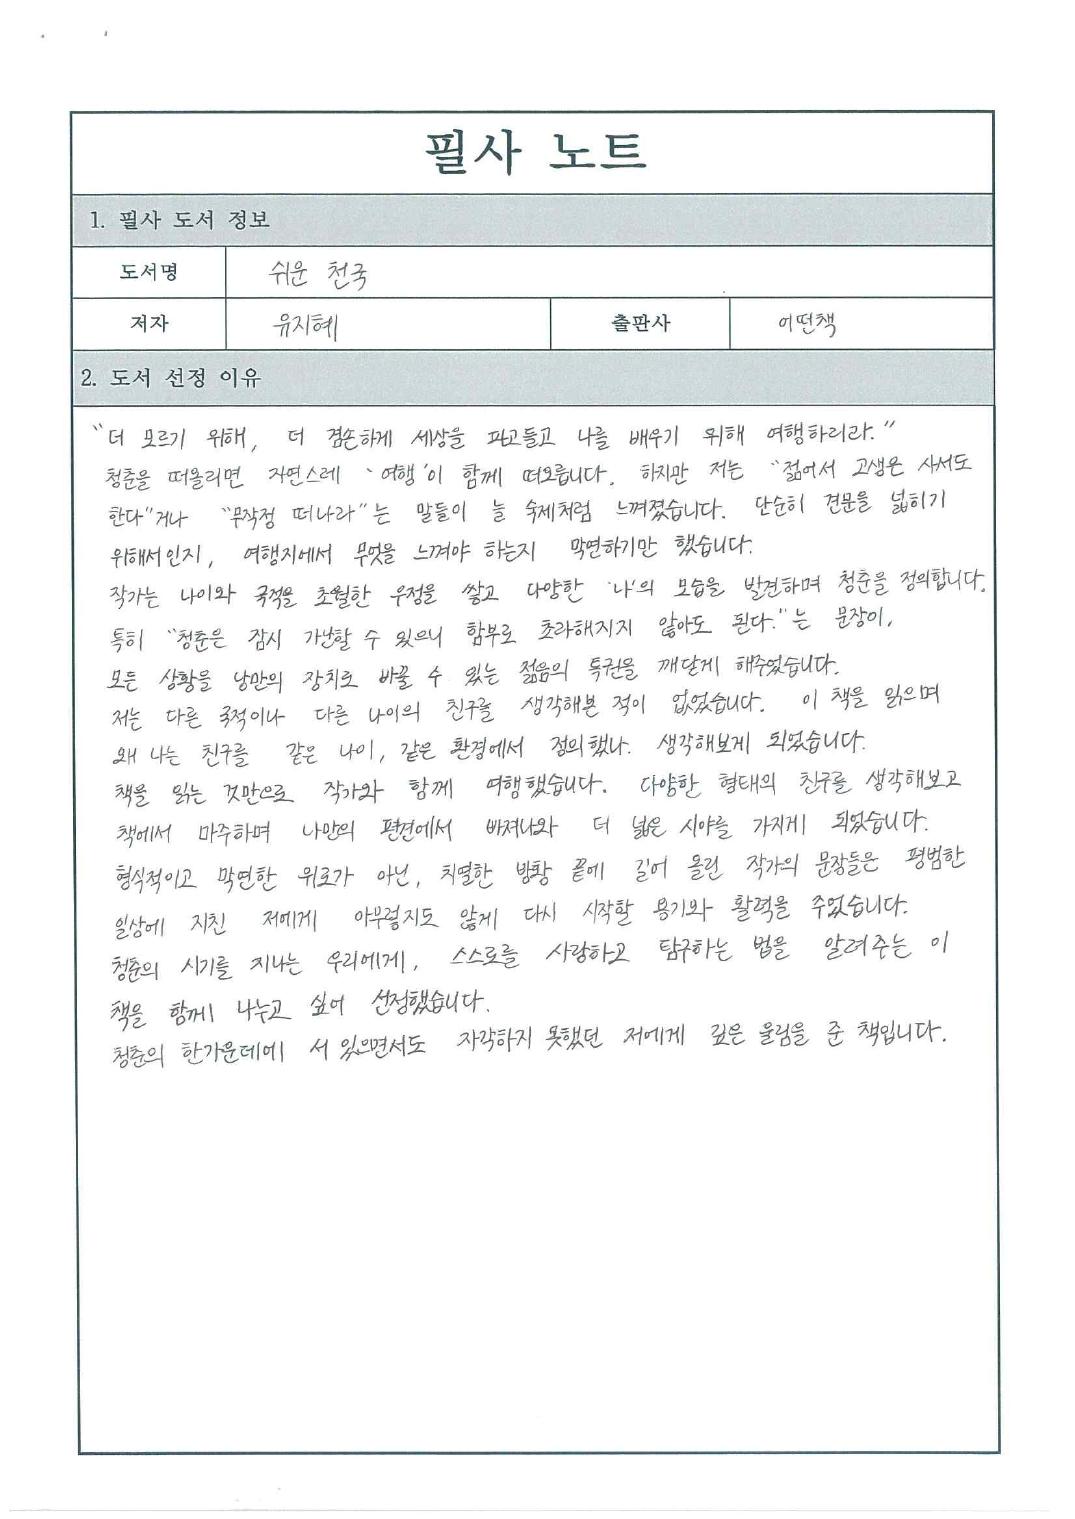 필사 노트
1. 필사 도서 정보
도서명 쉬운 천국
저자 유지혜 출판사 어떤책
2. 도서 선정 이유
"더 모르기 위해, 더 겸손하게 세상을 파고들고 나를 배우기 위해 여행하리라."
청춘을 떠올리면 자연스레 '여행'이 함께 떠오릅니다. 하지만 저는 "젊어서 고생은 사서도
한다"거나 "무작정 떠나라"는 말들이 늘 숙제처럼 느껴졌습니다. 단순히 견문을 넓히기
위해서인지, 여행지에서 무엇을 느껴야 하는지 막연하기만 했습니다.
작가는 나이와 국적을 초월한 우정을 쌓고 다양한 '나'의 모습을 발견하며 청춘을 정의합니다.
특히 "청춘은 잠시 가난할 수 있으니 함부로 초라해지지 않아도 된다."는 문장이,
모든 상황을 낭만의 장치로 바꿀 수 있는 젊음의 특권을 깨닫게 해주었습니다.
저는 다른 국적이나 다른 나이의 친구를 생각해본 적이 없었습니다. 이 책을 읽으며
왜 나는 친구를 같은 나이, 같은 환경에서 정의했나. 생각해보게 되었습니다.
책을 읽는 것만으로 작가와 함께 여행했습니다. 다양한 형태의 친구를 생각해보고
책에서 마주하며 나만의 편견에서 빠져나와 더 넓은 시야를 가지게 되었습니다.
형식적이고 막연한 위로가 아닌, 치열한 방황 끝에 길어 올린 작가의 문장들은 평범한
일상에 지친 저에게 아무렇지도 않게 다시 시작할 용기와 활력을 주었습니다.
청춘의 시기를 지나는 우리에게, 스스로를 사랑하고 탐구하는 법을 알려주는 이
책을 함께 나누고 싶어 선정했습니다.
청춘의 한가운데에 서 있으면서도 자각하지 못했던 저에게 깊은 울림을 준 책입니다.